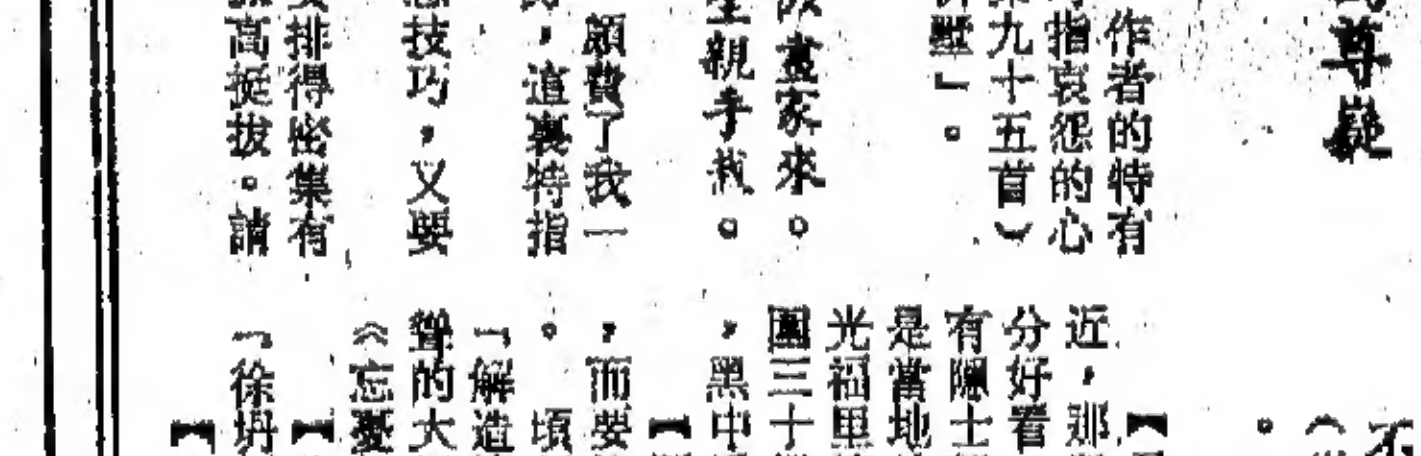 尊嶷
作者的特有
指哀怨的心
九十五首︶
墅」。
畫家來。
親手栽。
頗費了我一
，這裏特指
技巧，又要
排得密集有
高挺拔。請
不
。︵
【
近，那
分好看
有陳士
是當地
光福里
園三十
，黑中
【
，而要
。頃
「解造
聳的大
《忘憂
【
「徐坍
【